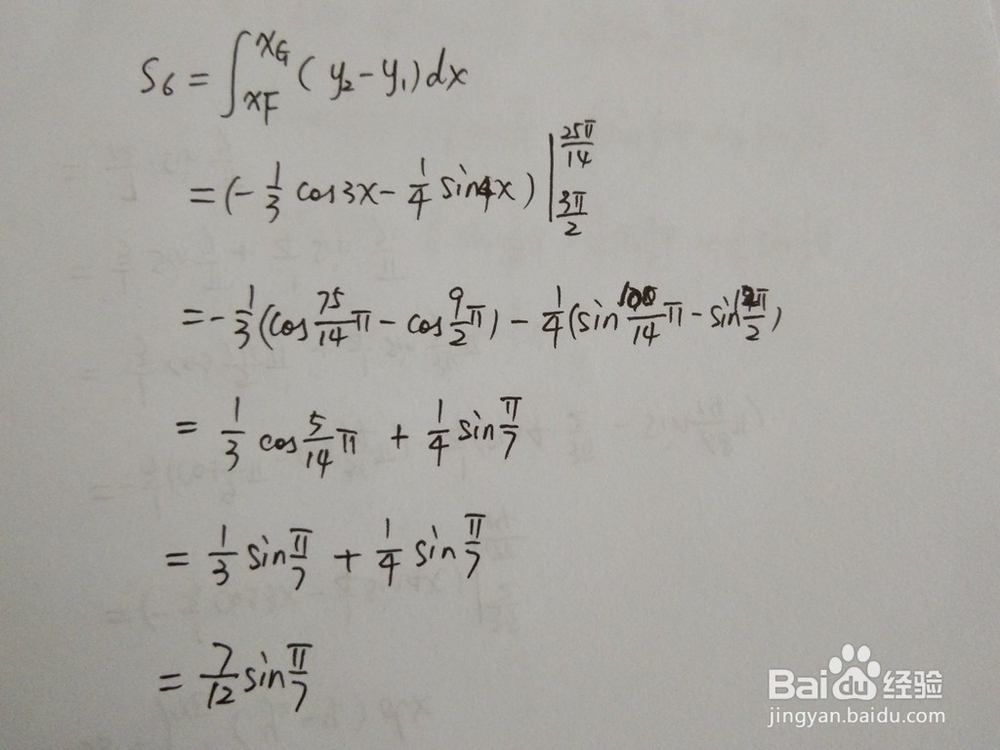 S₆ = ∫_{xF}^{xG} (y₂ - y₁) dx
= (- 1/3 cos3x - 1/4 sin4x) |_{3π/2}^{25π/14}
= - 1/3 (cos 75/14 π - cos 9/2 π) - 1/4 (sin 100/14 π - sin 12π/2)
= 1/3 cos 5/14 π + 1/4 sin π/7
= 1/3 sin π/7 + 1/4 sin π/7
= 7/12 sin π/7
Baidu 经验
jingyan.baidu.com